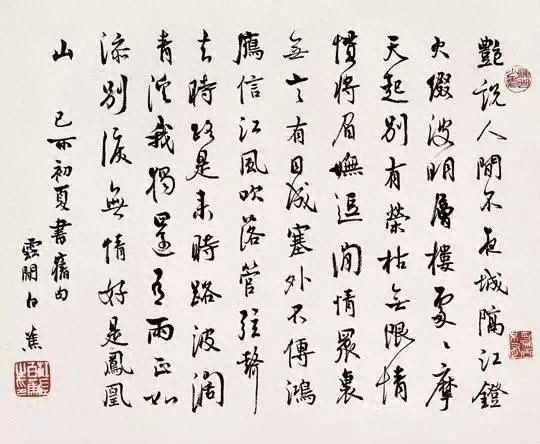 艷說人間不夜城隔江鐙
火綴波明層樓處〻摩
天起別有榮枯無限情
慣將眉嫵逗閒情眾裏
無言有目成塞外不傳鴻
鴈信江風吹落管弦聲
去時路是來時路波闊
青我獨還雨正如
添別淚無情好是鳳凰
山 己亥初夏書舊句
雲間白蕉